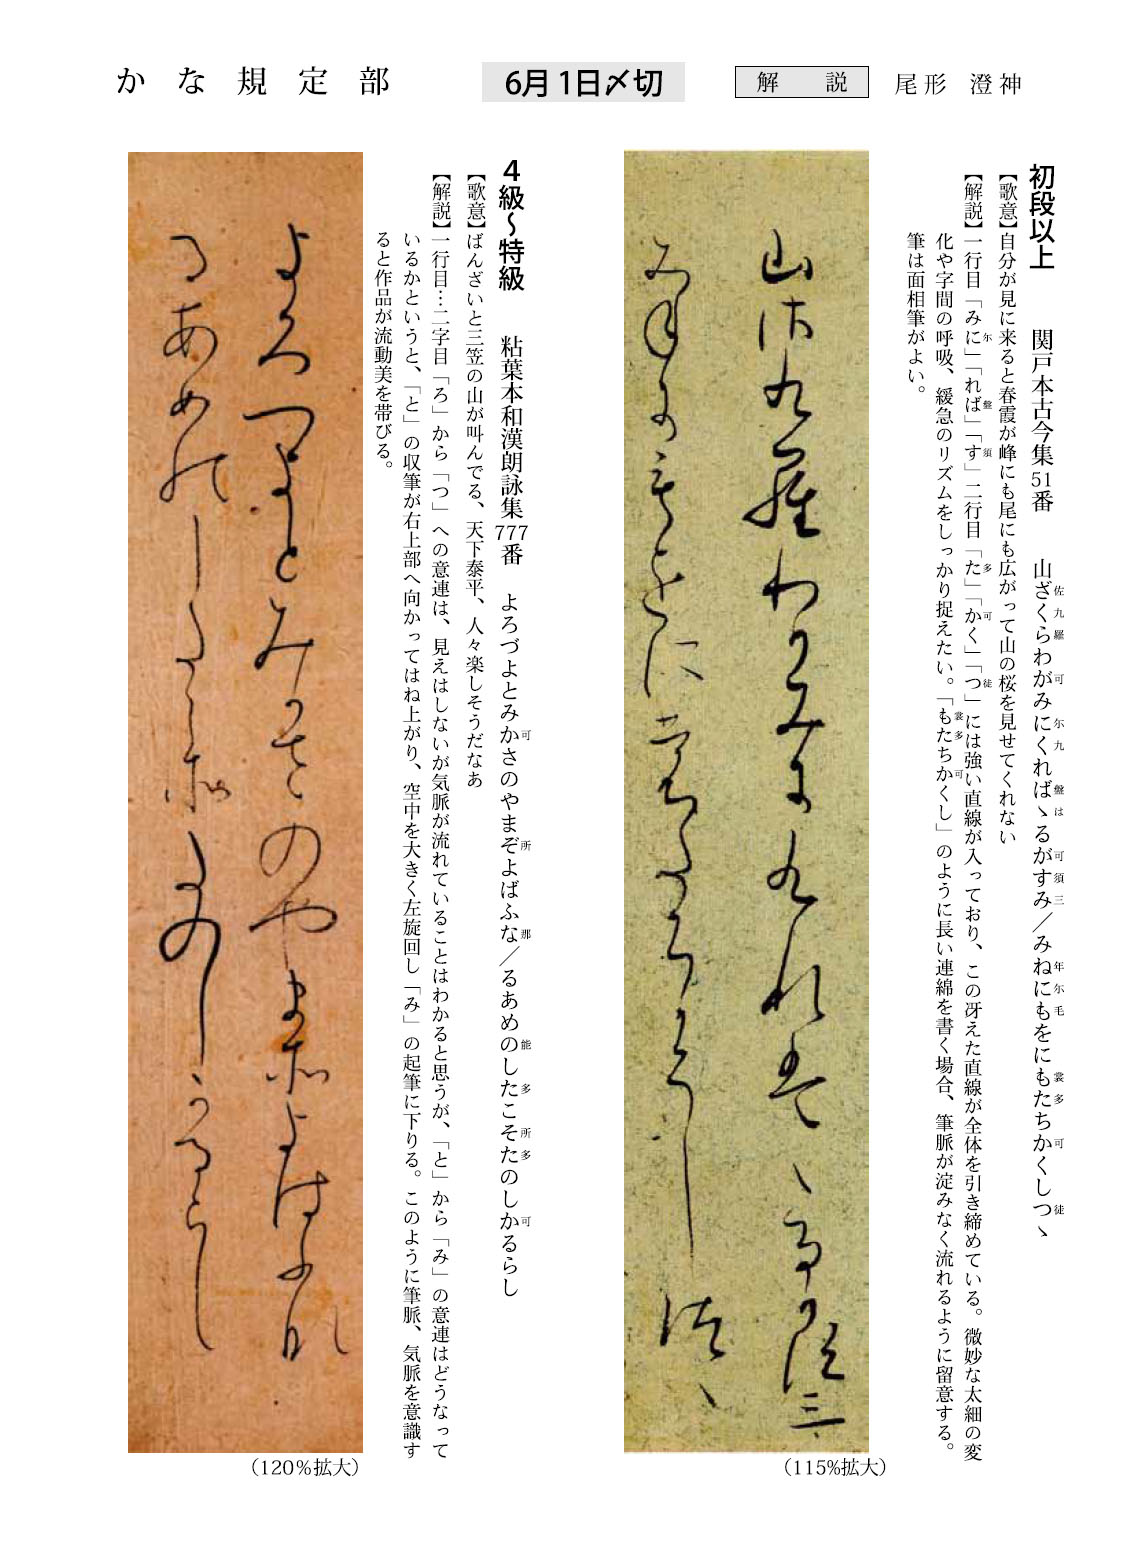 かな規定部
6月1日〆切
解 説
尾形 澄神
初段以上 関戸本古今集51番 山ざくらわがみにくればゝるがすみ／みねにもをにもたちかくしつゝ
佐九羅 可 尓九 盤は 可須三 年尓毛 裳多 可 徒
【歌意】自分が見に来ると春霞が峰にも尾にも広がって山の桜を見せてくれない
【解説】一行目「みに」「れば」「す」二行目「た」「かく」「つ」には強い直線が入っており、この冴えた直線が全体を引き締めている。微妙な太細の変
尓 盤 須 多 可 徒
化や字間の呼吸、緩急のリズムをしっかり捉えたい。「もたちかくし」のように長い連綿を書く場合、筆脈が淀みなく流れるように留意する。
裳多 可
筆は面相筆がよい。
山佐九羅わ可み尓九れ盤ゝる可須三
みね尓毛をに裳多ち可くし徒ゝ
(115%拡大)
4級〜特級 粘葉本和漢朗詠集777番 よろづよとみかさのやまぞよばふな／るあめのしたこそたのしかるらし
可 所 那 能 多 所多 可
【歌意】ばんざいと三笠の山が叫んでる、天下泰平、人々楽しそうだなあ
【解説】一行目…二字目「ろ」から「つ」への意連は、見えはしないが気脈が流れていることはわかると思うが、「と」から「み」の意連はどうなって
いるかというと、「と」の収筆が右上部へ向かってはね上がり、空中を大きく左旋回し「み」の起筆に下りる。このように筆脈、気脈を意識す
ると作品が流動美を帯びる。
よろつよとみ可さのやま所よはふ那
るあめ能し多こ所多のし可るらし
(120%拡大)